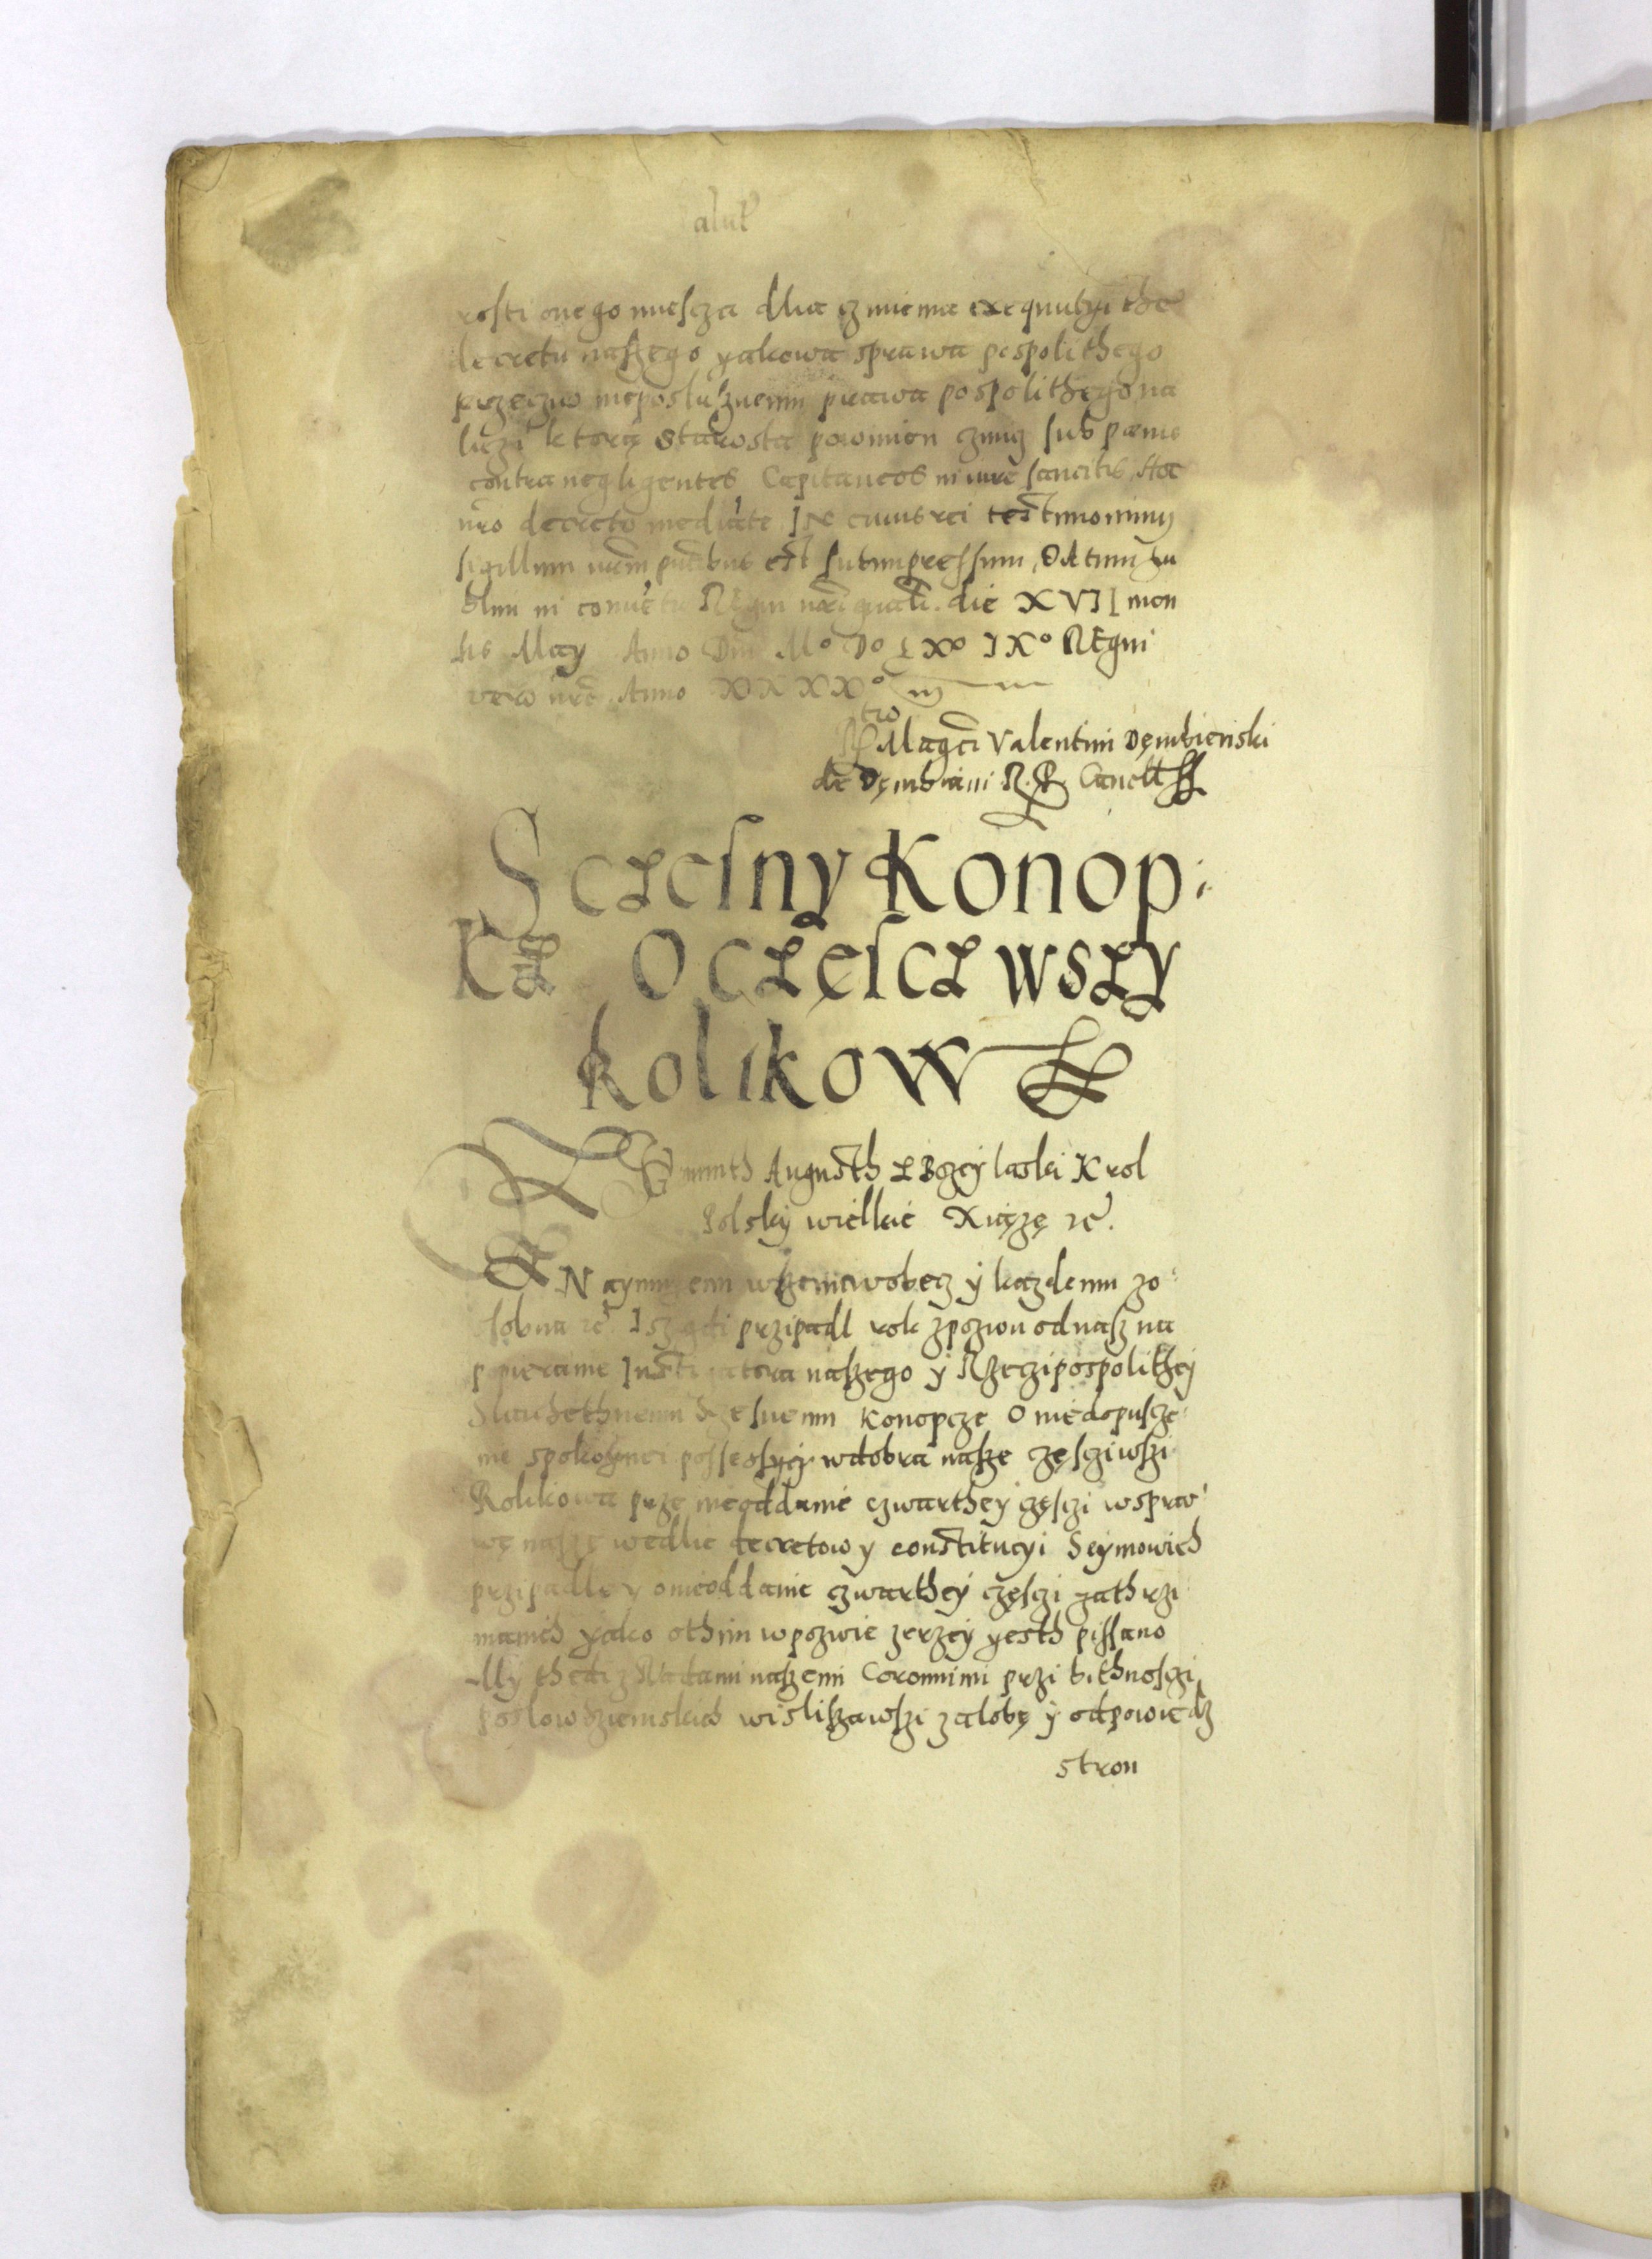 rosti onego miescza dlia czinienia exequutyi the
decretu naszego yakowa sprawa pospolithego
przeczno nieposlusznemu prawa pospolithego na
lezi ktorą Starosta powinien czinicz sub poenis
contra negligentes Capitaneos in iure sancitis Hoc
nro decreto mediate In cuius rei testimonium
sigillum nrm pntibus est subimpressum, Datum Lu
blini in conuetu Regni nri gnali die XVII men
sis May Anno Dni Mo Do Lxo IXo Regni
vero nri Anno XXXXo
Rtio Magci Valentini Dęmbienski
de Dęmbiani R. P. Cancell
Sczesny Konop:
Ka Oczescz wszy
Kolikow
Zigmunth Augusth z Bozey laski Krol
Polsky wielkie Xiązę etc.
Znaymuiemi wszem wobecz y kazdemu zo
sobna etc Isz gdi przipadl rok zpozwu od nasz na
popieranie Instigatora naszego y Rzeczipospolithey
Slachethnemu Sczesnemu Konopcze O niedopuscze
nie spokoynei possessyey w dobra nasze częscziwszi
Kolikowa prze nieoddanie czwarthey częsczi w spraw
wę naszę wedlie decretow y constitucyi Seymowich
przipadle y o nieoddanie czwarthey częsczi zathrzi
manich yako o thim w pozwie zerzey yesth pissano
My thedi z Radami naszemi Coronnimi przi bithnosczi
poslow Ziemskich wisliszawszi zalobę y odpowiedz
stron